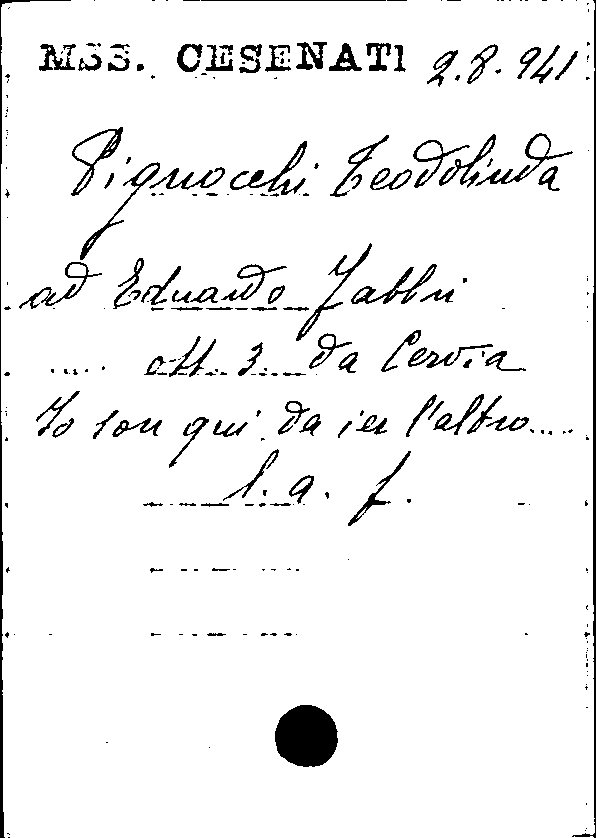 MSS. CESENATI 2.8.941
Pignocchi Teodolinda
ad Eduardo Fabbri
..... ott. 3 da Cervia
Io son qui da ier l'altro....
l. a. f.